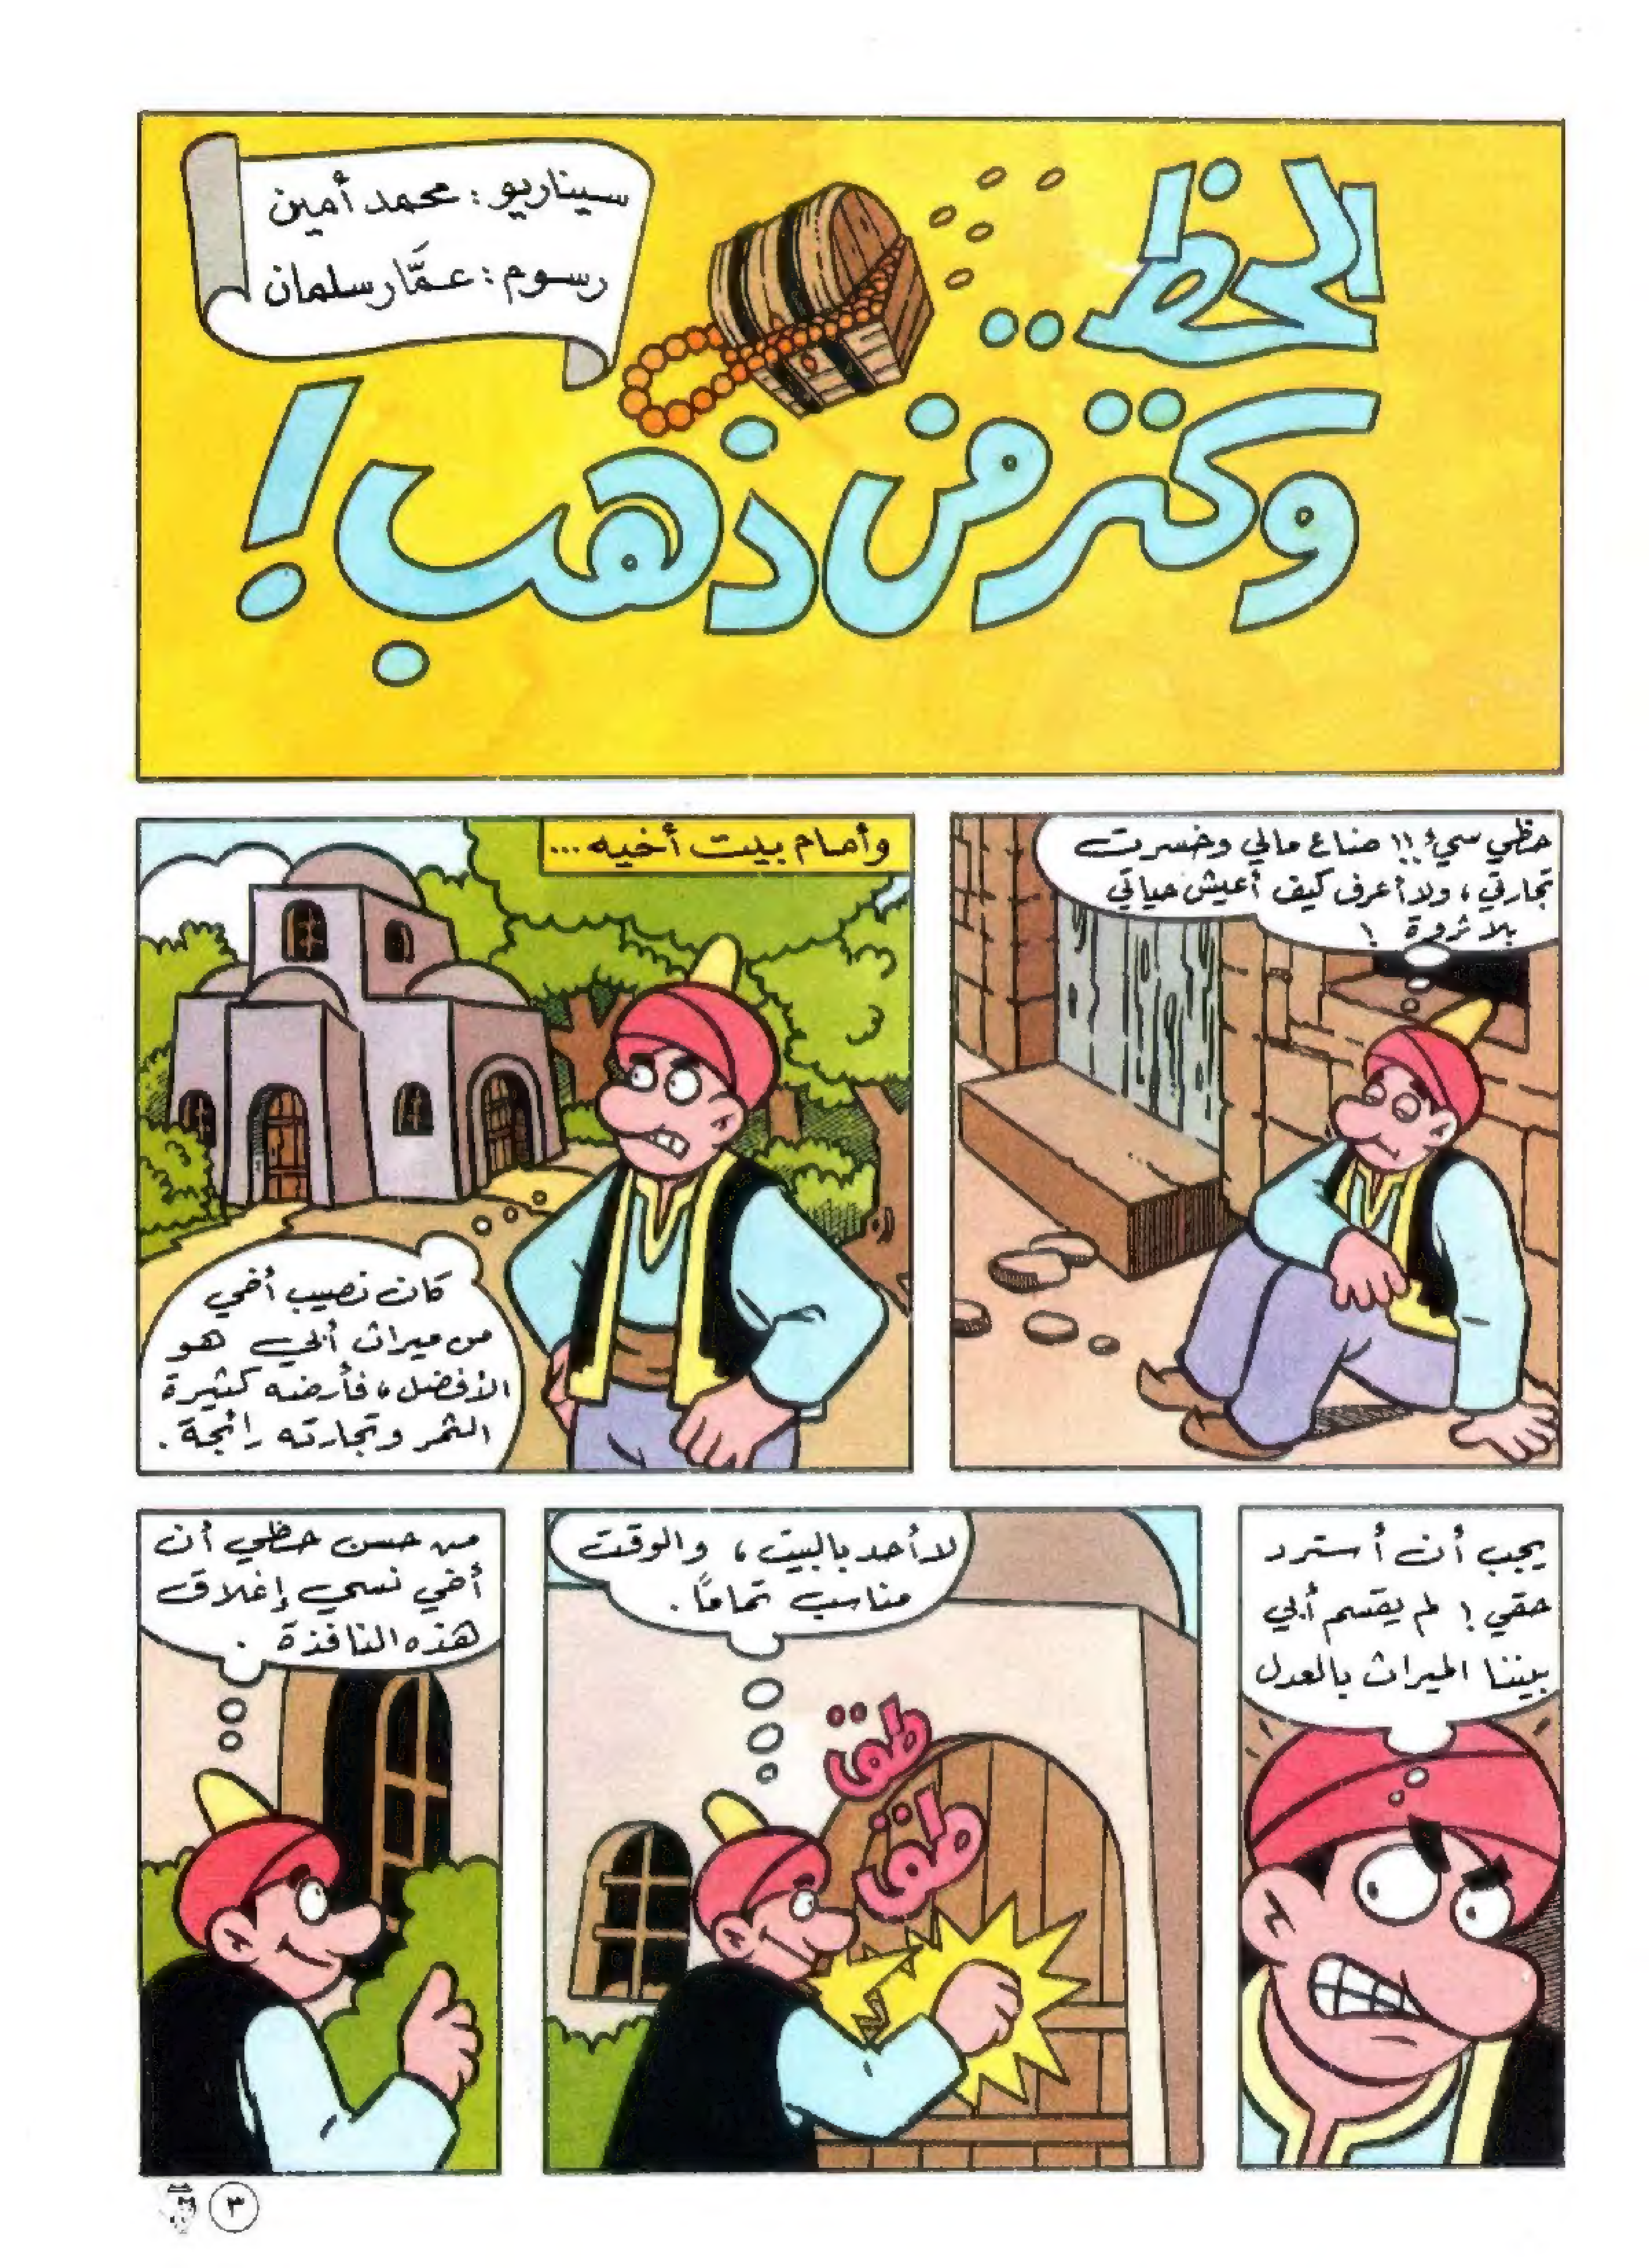 الحظ..
وكنز من ذهب!
سيناريو: محمد أمين
رسوم: عمَّار سلمان
حظي سيئ!! ضاع مالي وخسرت
تجارتي، ولا أعرف كيف أعيش حياتي
بلا ثروة!
وأمام بيت أخيه...
كان نصيب أخي
من ميراث أبي هو
الأفضل، فأرضه كثيرة
الثمر وتجارته رائجة.
يجب أن أسترد
حقي! لم يقسم أبي
بيننا الميراث بالعدل
لا أحد بالبيت، والوقت
مناسب تمامًا.
طق
طق
من حسن حظي أن
أخي نسي إغلاق
هذه النافذة.
٣